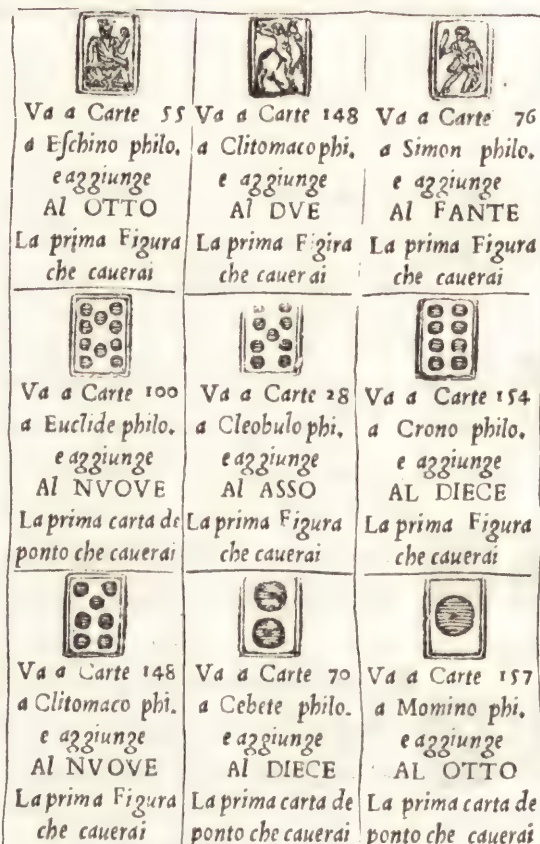 Va a Carte 55
a Eſchino philo.
e aggiunge
Al OTTO
La prima Figura
che cauerai
Va a Carte 148
a Clitomaco phi.
e aggiunge
Al DVE
La prima Figira
che cauerai
Va a Carte 76
a Simon philo.
e aggiunge
Al FANTE
La prima Figura
che cauerai
Va a Carte 100
a Euclide philo.
e aggiunge
Al NVOVE
La prima carta de
ponto che cauerai
Va a Carte 28
a Cleobulo phi.
e aggiunge
Al ASSO
La prima Figura
che cauerai
Va a Carte 154
a Crono philo.
e aggiunge
AL DIECE
La prima Figura
che cauerai
Va a Carte 148
a Clitomaco phi.
e aggiunge
Al NVOVE
La prima Figura
che cauerai
Va a Carte 70
a Cebete philo.
e aggiunge
Al DIECE
La prima carta de
ponto che cauerai
Va a Carte 157
a Momino phi.
e aggiunge
AL OTTO
La prima carta de
ponto che cauerai